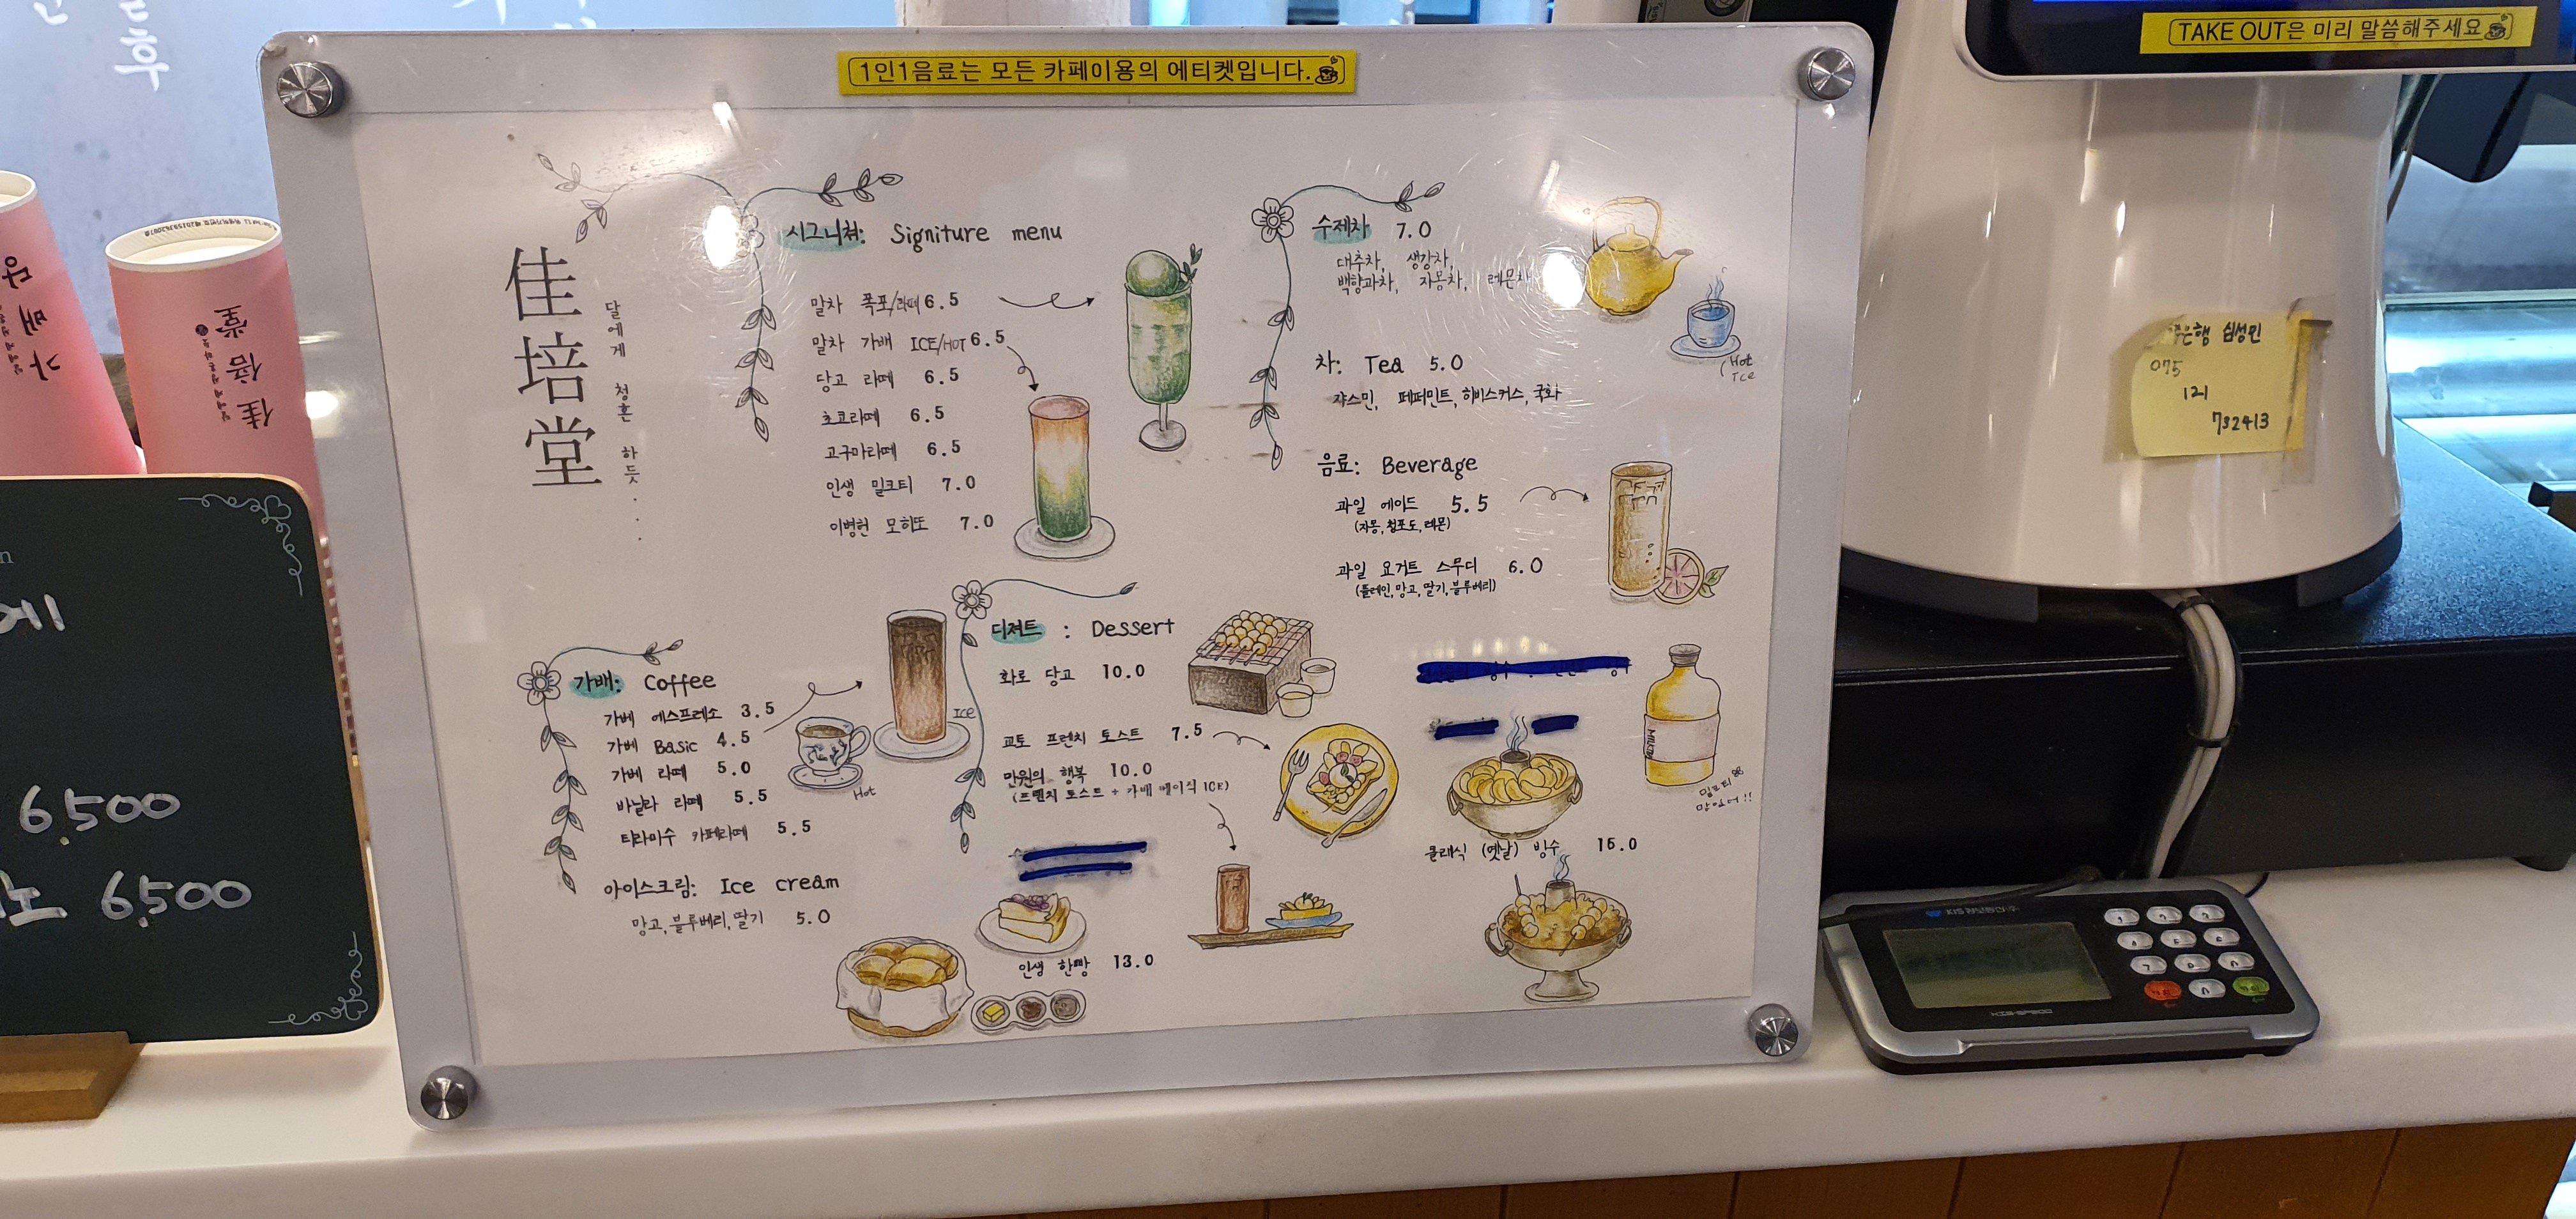 1인1음료는 모든 카페이용의 에티켓입니다.
TAKE OUT은 미리 말씀해주세요
佳培堂
달에게 청혼 하듯...
시그니쳐: Signiture menu
말차 폭포/라떼 6.5
말차 가배 ICE/HOT 6.5
당고 라떼 6.5
초코라떼 6.5
고구마라떼 6.5
인생 밀크티 7.0
이병헌 모히또 7.0
가배: Coffee
가베 에스프레소 3.5
가베 Basic 4.5
가베 라떼 5.0
바닐라 라떼 5.5
티라미수 카페라떼 5.5
Hot
ICE
아이스크림: Ice cream
망고, 블루베리, 딸기 5.0
디저트 : Dessert
화로 당고 10.0
교토 프렌치 토스트 7.5
만원의 행복 10.0
(프렌치 토스트 + 가배 베이직 ICE)
인생 한빵 13.0
수제차 7.0
대추차, 생강차,
백향과차, 자몽차, 레몬차
Hot
Ice
차: Tea 5.0
쟈스민, 페퍼민트, 히비스커스, 국화
음료: Beverage
과일 에이드 5.5
(자몽, 청포도, 레몬)
과일 요거트 스무디 6.0
(플레인, 망고, 딸기, 블루베리)
클래식 (옛날) 빙수 15.0
밀크티
맛있어!!
심성민
075
121
732413
佳倍堂
가배당
6,500
6,500